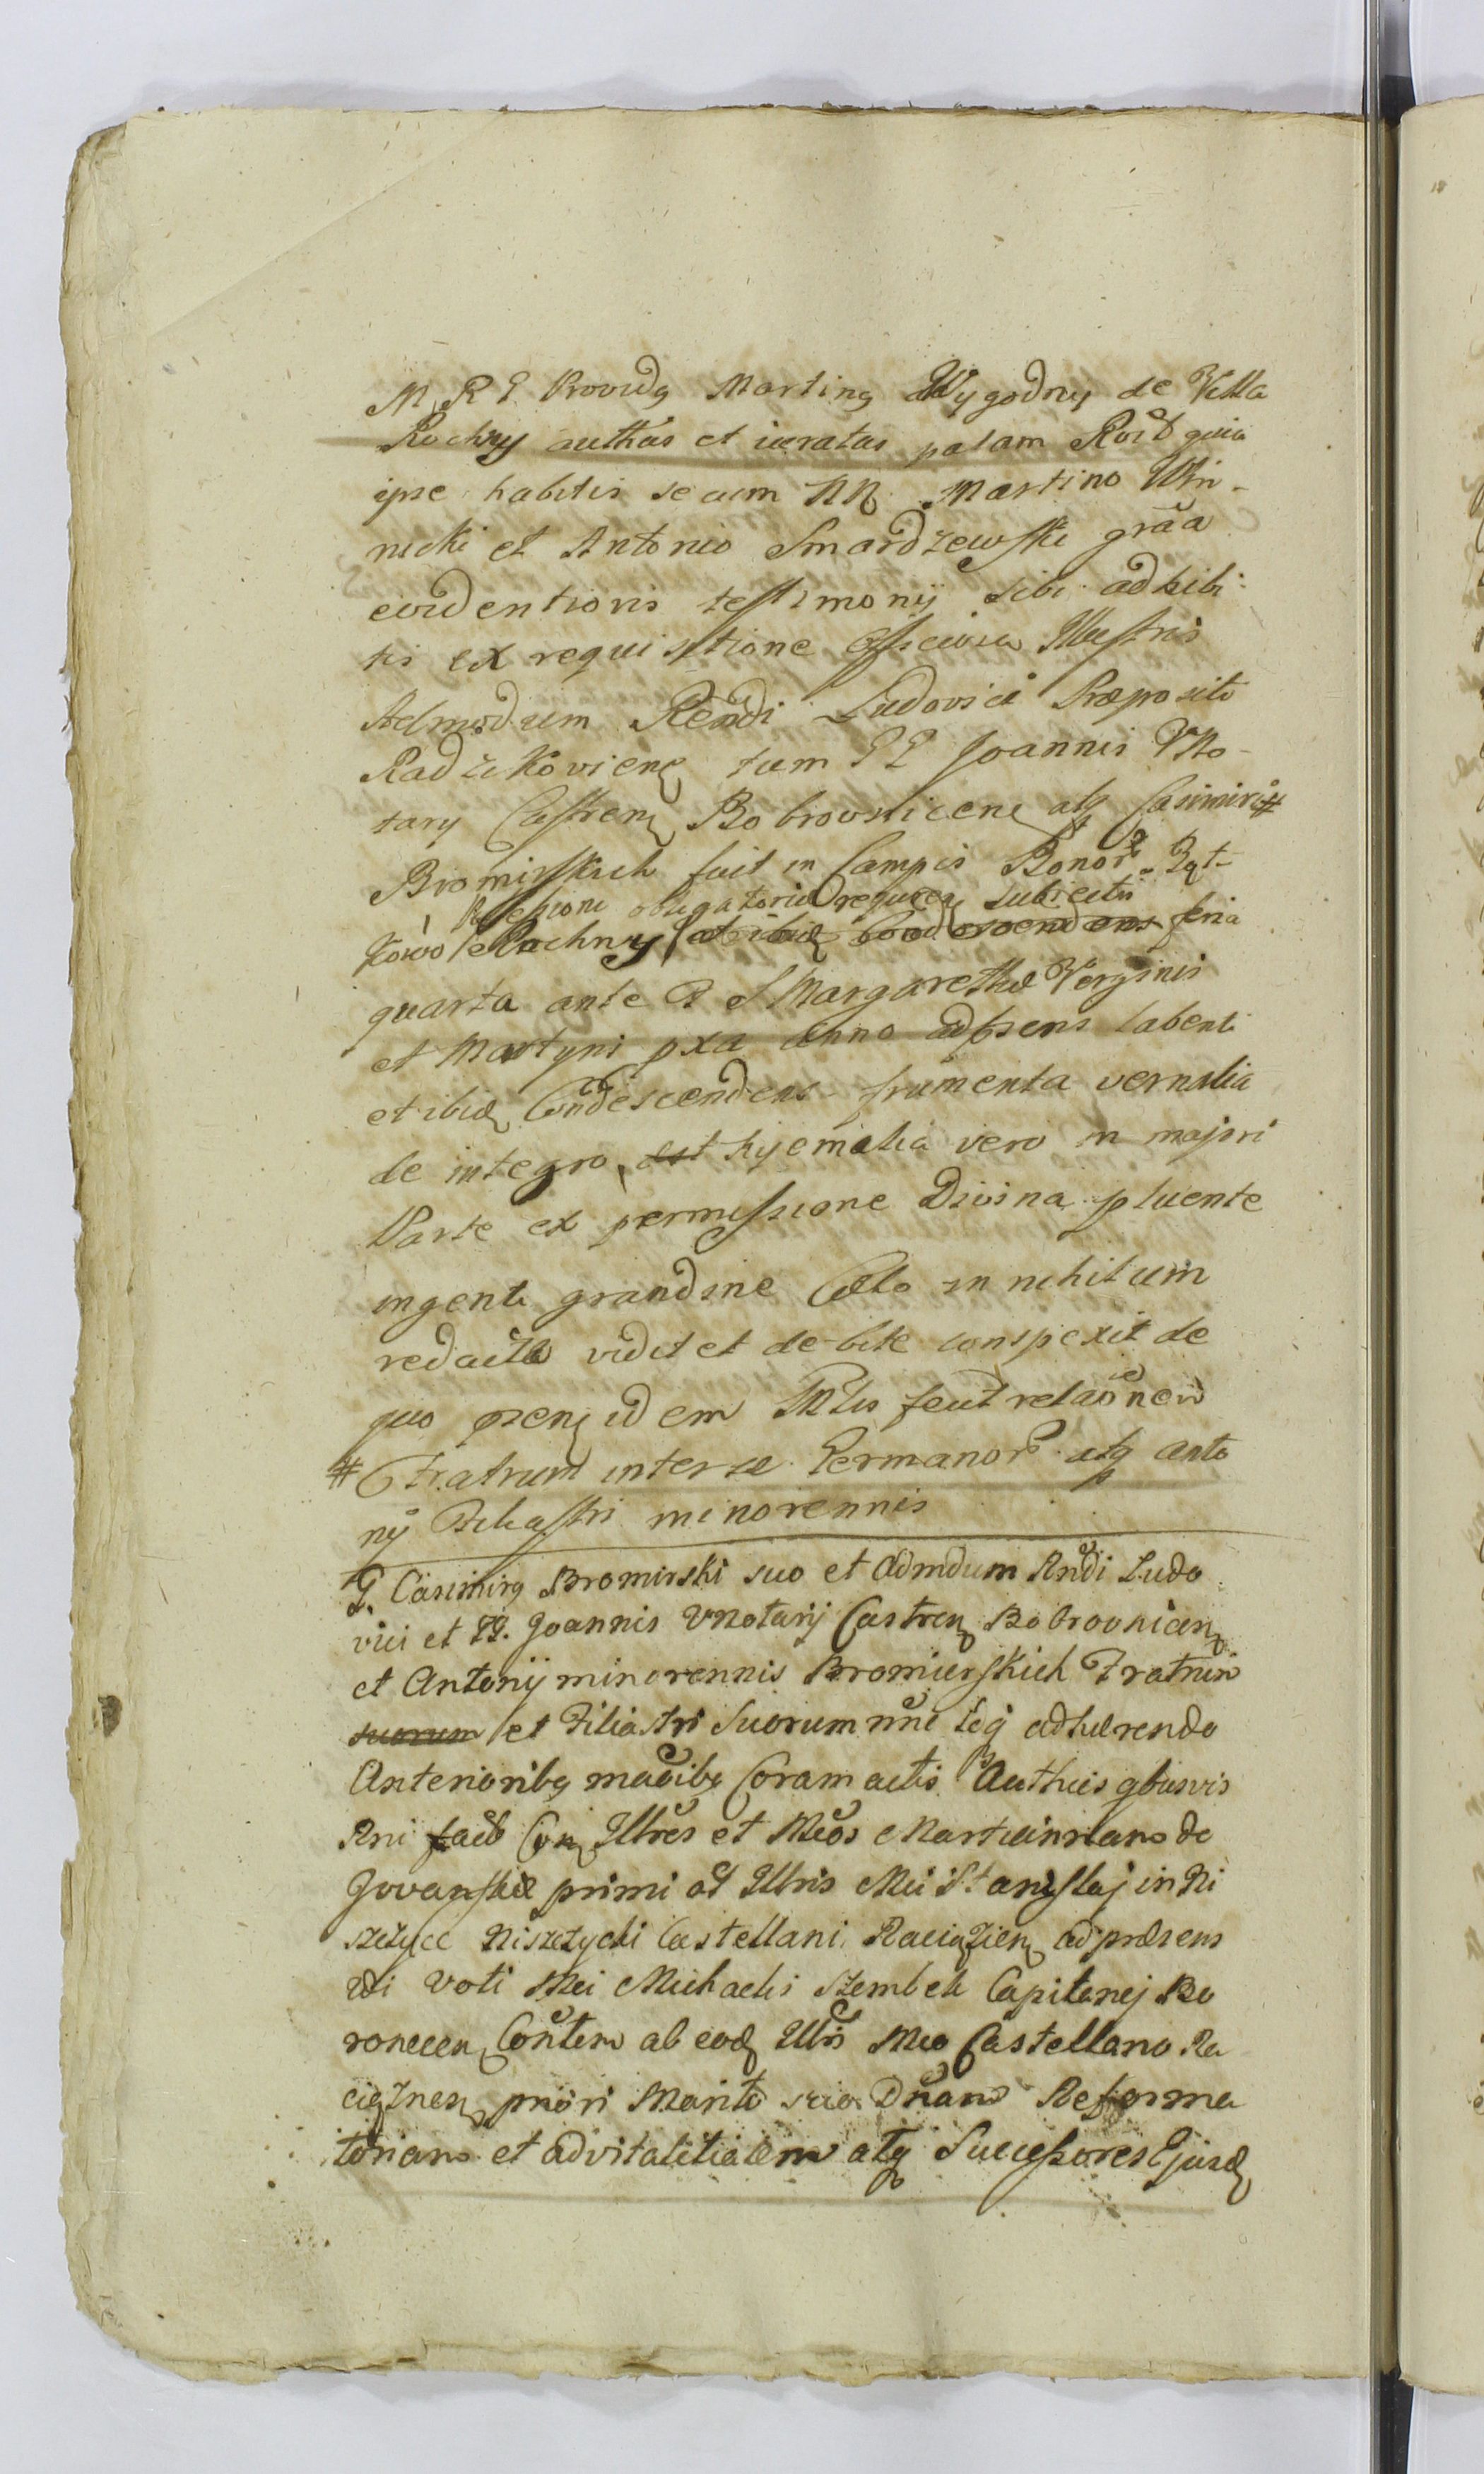 M. R G. Providꝯ Martinꝯ Wygodny de Villa
Rochny authus et iuratus palam Rōit quia
ipse habitis secum NN. Martino Win-
nicki et Antonio Smardzewski grāa
evidentioris testimonij sibi adhibi-
tis ex requisitione officiosa Illustris
Admodum Rendi Ludovici Præposito
Radzikoviens tum GG Joannis VNo-
tary Castren Bobrovnicens atq Casimiri #
Bromirskich fuit in Campis Bonor
Possessioni obligatoriæ subiectis
Rochny et ibid Condescendens feria
quarta ante F S Margarethæ Verginis
et Martyris pxa Anno adpsens labenti
et ibid Condescendens frumenta vernalia
de integro est hyemalia vero in majori
Parte ex permissione Divina pluente
ingenti grandine Cælo in nihilum
redacta vidit et debite conspexit de
quo psens idem Mlis fecit relaōnem
# Fratrum inter se Germanor atq Anto
nij Filiastri minorennis
G. Casimirꝯ Bromirski suo et Admdum Rndi Ludo
vici et GG. Joannis VNotarij Castren Bobrovnicen
et Antonij minorennis Bromierskich Fratrum
suorum et Filiastri Suorum nne adhærendo
Anterioribꝯ Coram actis Authcis qbusvis
Rni facit Con Illres et Mcos Martwinnano de
primi ad Illris Mci Stanislaj in Ni
szczyce Niszczycki Castellani Raciązien ad præsens
2di voti Mci Michaelis Szembek Capitanej Bo
Contem ab eod Illri Mco Castellano Ra
ciąznen priori Marito suo Dnam Reforma
toriam et advitalitialem atq Successores Ejusd